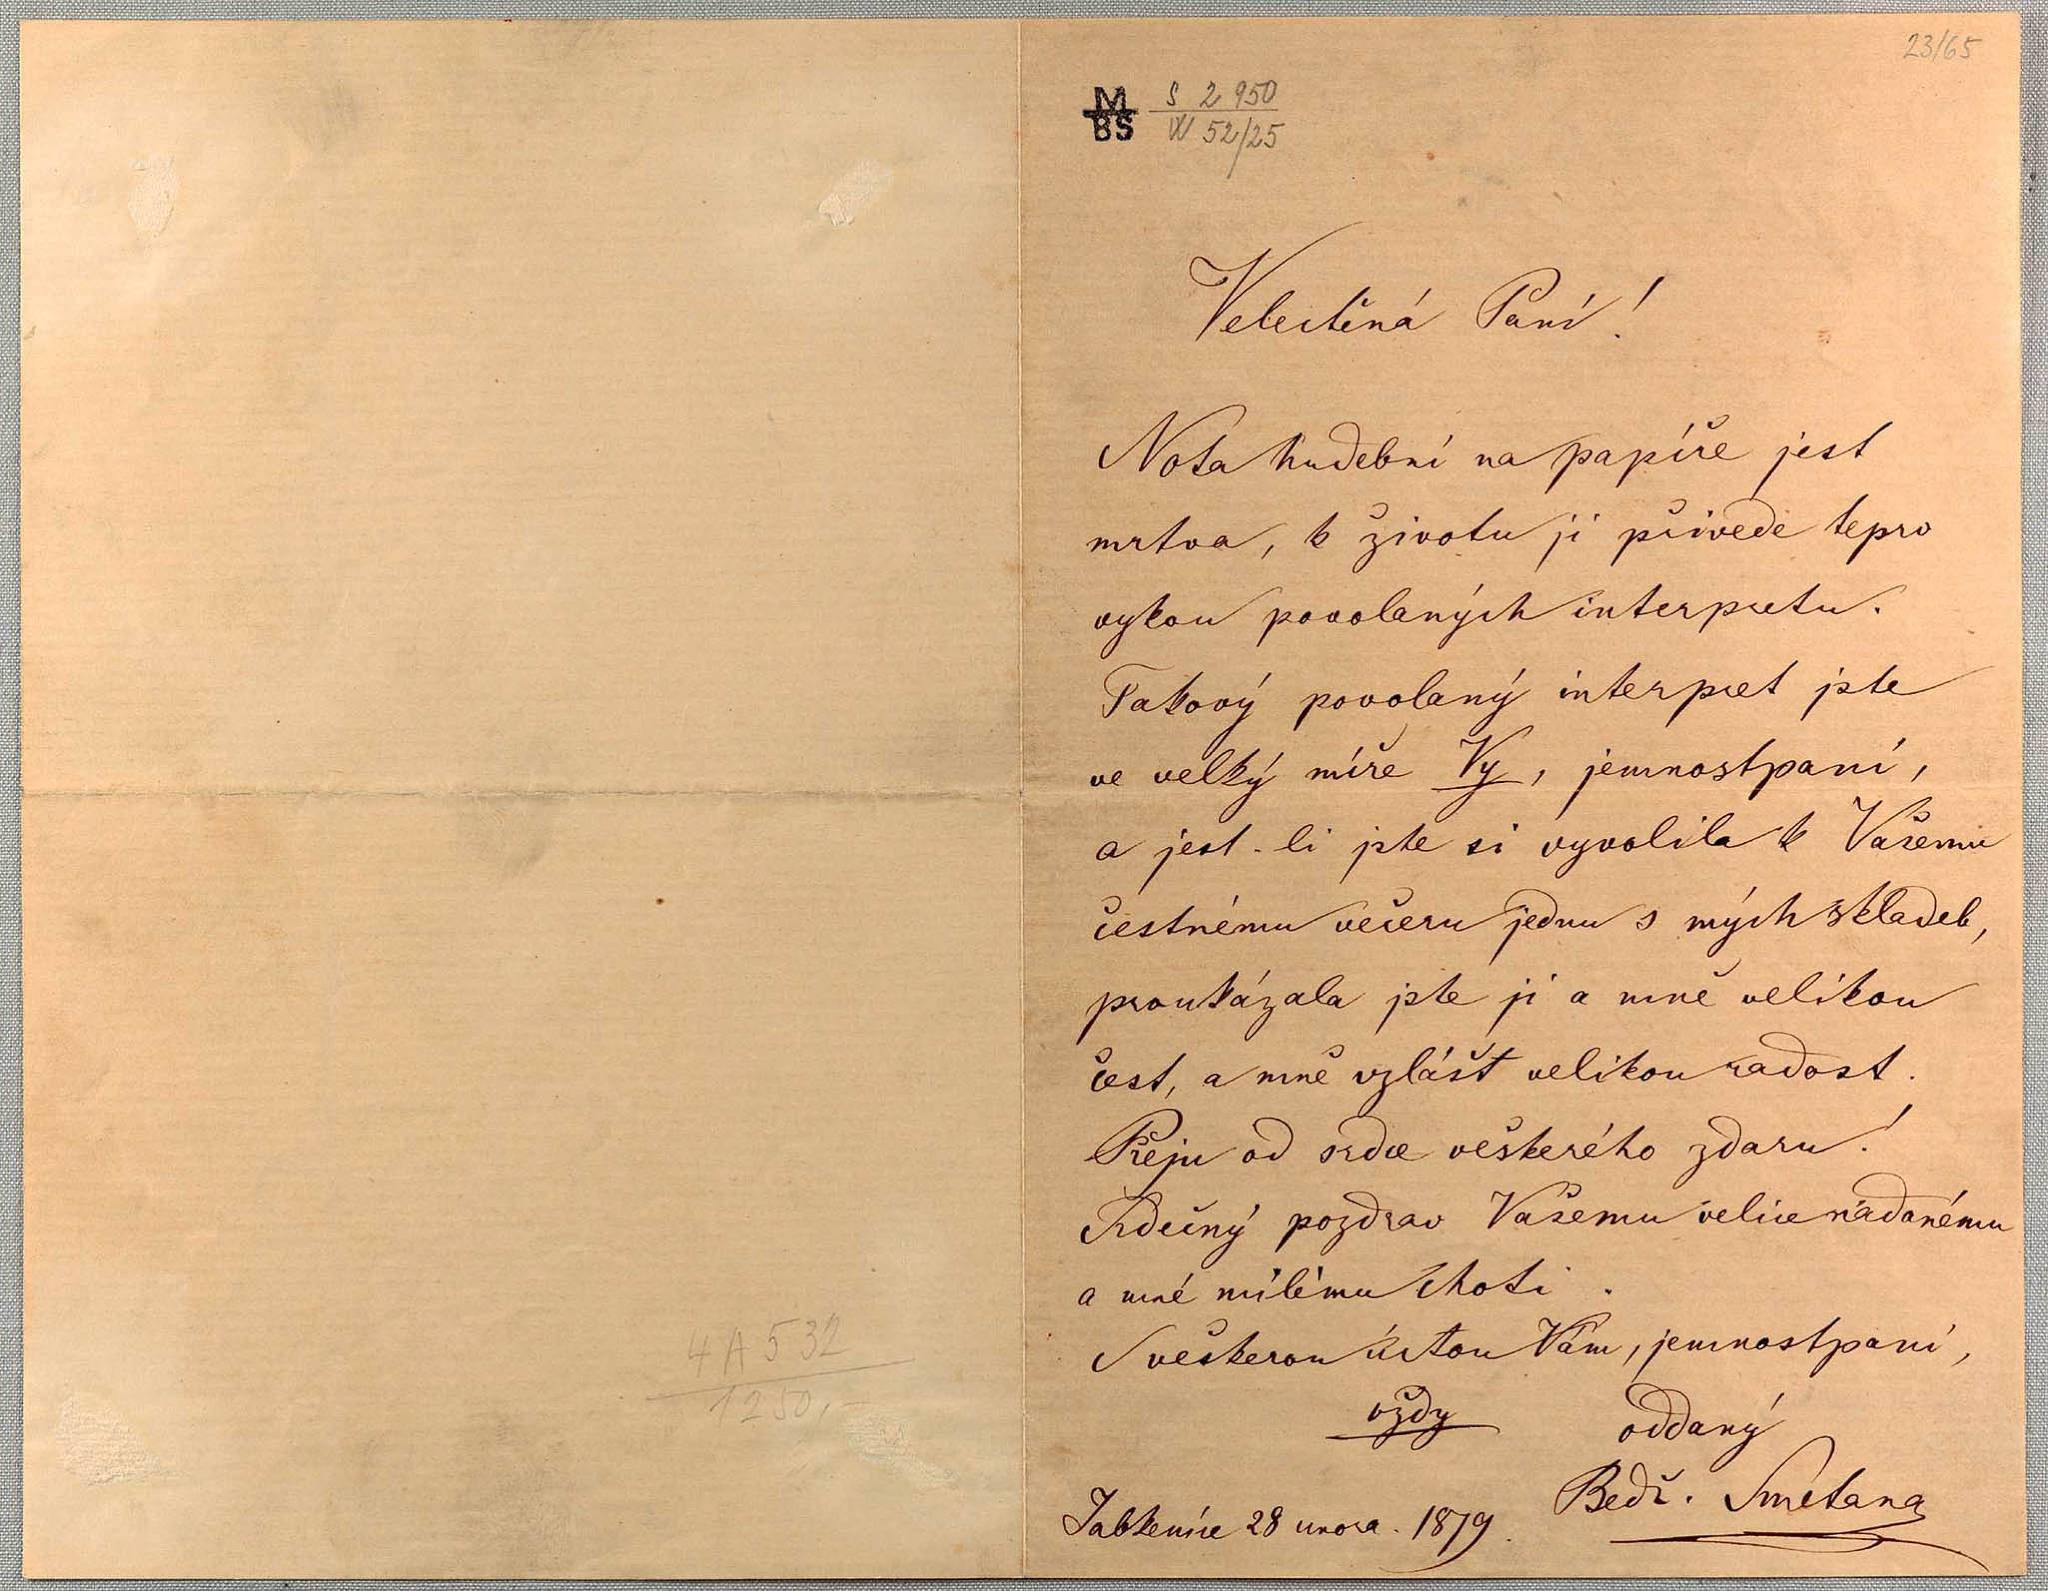 23/65
M
BS
S 2 950
W 52/25
Velectěná Paní!
Nota hudební na papíře jest
mrtva, k životu ji přivede tepro
vykon povolaných interpretu.
Takový povolaný interpret jste
ve velký míře Vy, jemnostpaní,
a jest-li jste si vyvolila k Vašemu
čestnému večeru jednu s mých skladeb,
proukázala jste ji a mně velikou
čest, a mně vzlášť velikou radost.
Přeju od srdce veškerého zdaru!
Srdečný pozdrav Vašemu velice nadanému
a mně milému choti.
S veškerou úctou Vám, jemnostpaní,
vždy oddaný
Bedř. Smetana
Jabkenice 28 unora. 1879.
4 A 532
1250,-